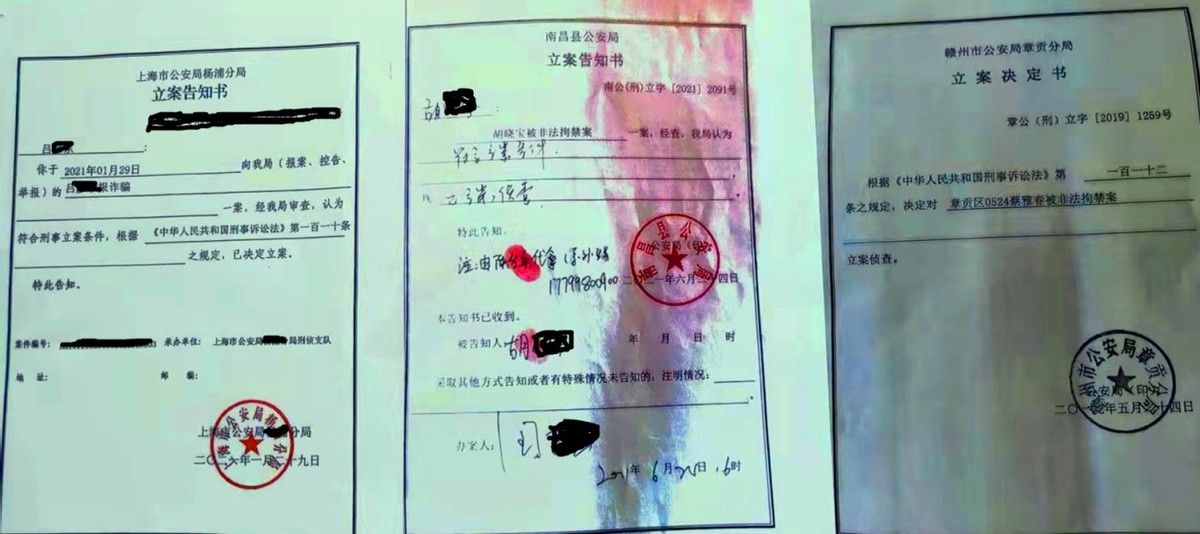 上海市公安局杨浦分局
立案告知书
吕
你于 2021年01月29日 向我局（报案、控告、
举报）的 吕 报诈骗
一案，经我局审查，认为
符合刑事立案条件，根据 《中华人民共和国刑事诉讼法》第一百一十条
之规定，已决定立案。
特此告知。
案件编号： 承办单位： 上海市公安局 局刑侦支队
地 址： 邮 编：
上海市公安局 分局
一月二十九日
南昌县公安局
立案告知书
南公(刑)立字 [2021] 2091号
胡
胡晓宝被非法拘禁案 一案，经查，我局认为
符合立案条件，
特此告知。
南昌县公安局
注：由
17799800900
六月二十四日
本告知书已收到。
被告知人： 胡 年 月 日 时
采取其他方式告知或者有特殊情况未告知的，注明情况：
办案人：
2021年 6月 日
赣州市公安局章贡分局
立案决定书
章公（刑）立字 [2019] 1259号
根据《中华人民共和国刑事诉讼法》第 一百一十二
条之规定，决定对 章贡区0524蔡雅春被非法拘禁案
立案侦查。
赣州市公安局章贡分局
五月二十四日